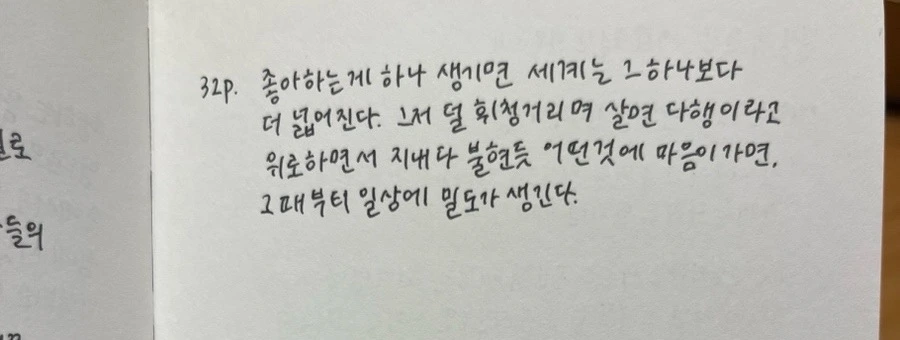 32p. 좋아하는게 하나 생기면 세계는 그 하나보다
더 넓어진다. 그저 덜 휘청거리며 살면 다행이라고
위로하면서 지내다 불현듯 어떤것에 마음이 가면,
그때부터 일상에 밀도가 생긴다.
로
들의